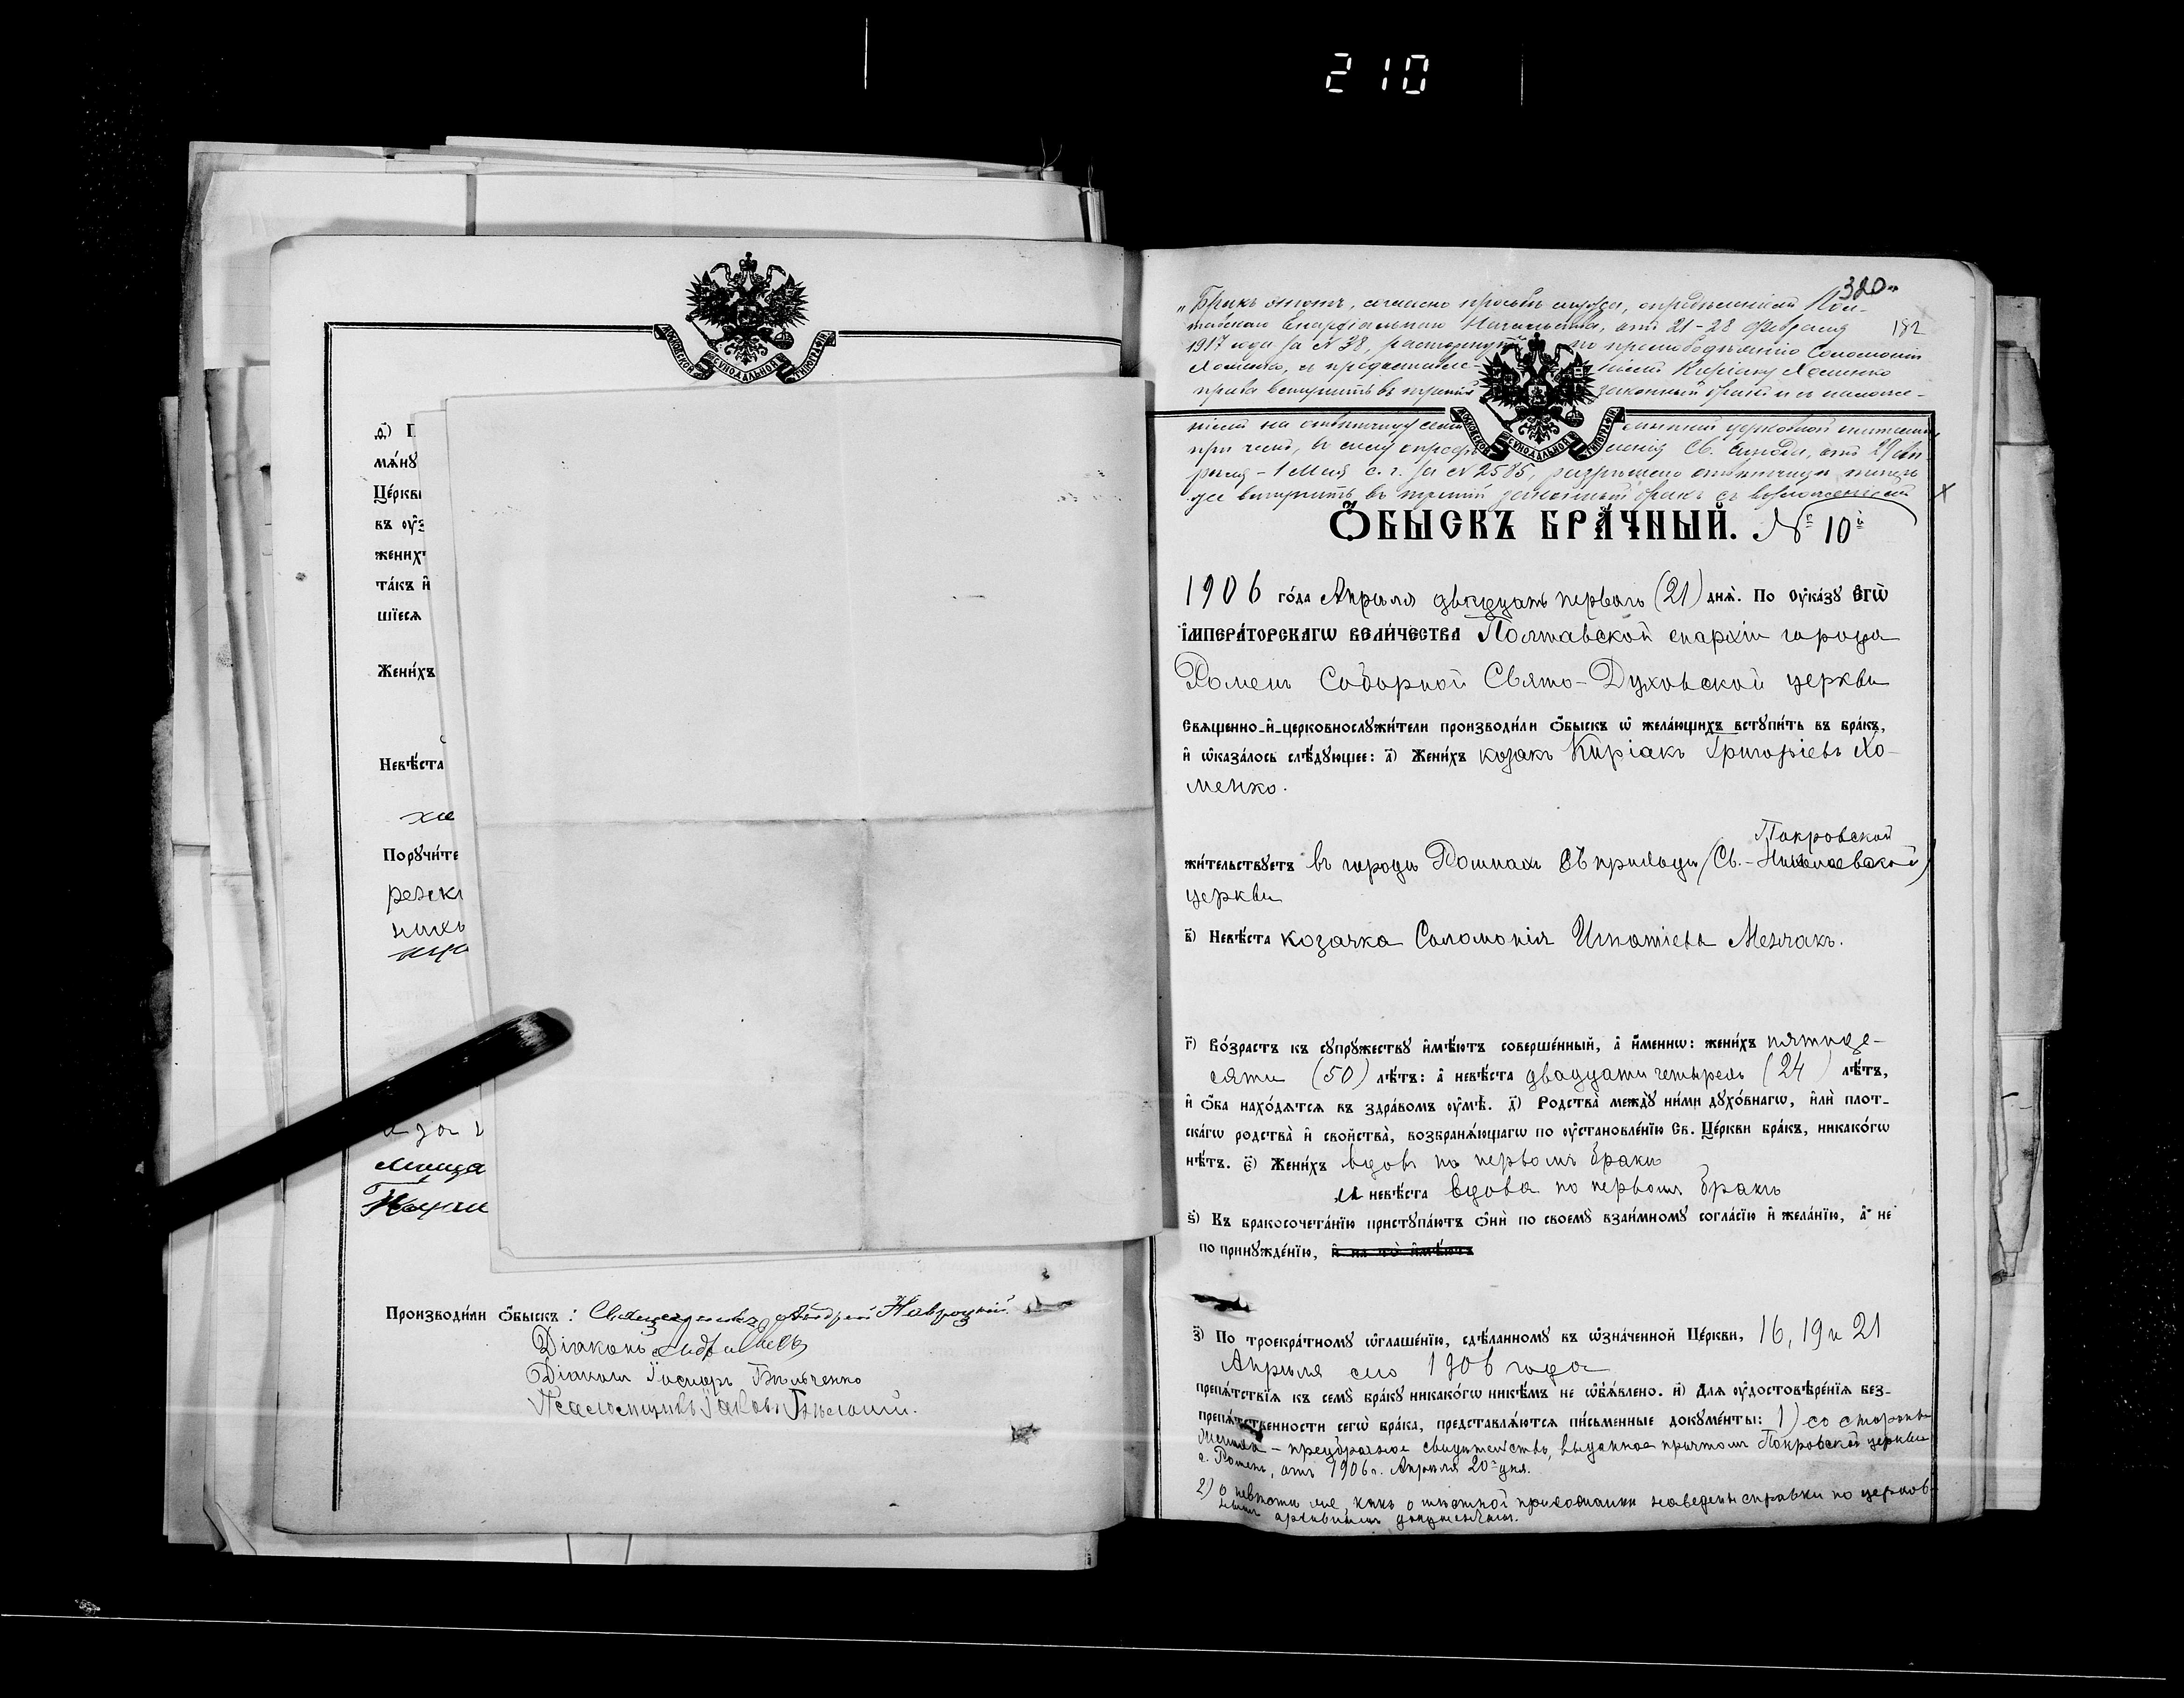 210
МОСКОВСКОЙ СѴНОДАЛЬНОЙ ТИПОГРАФІИ
д҃) П
мѧ́нꙋ
Це́ркви
въ оу҆з
жених
та́къ и҆
шіеся
Жени́хъ
Невѣ́ста
Порꙋчи́те
Производи́ли ѻ҆́быскъ: Священникъ Андрей Навроцкій
Діаконъ
Діаконъ Іосифъ Бильченко
Псаломщикъ Іаковъ
320
182
„Бракъ этотъ, согласно просьбѣ супруга, опредѣленіемъ Пол-
тавскаго Епархіальнаго Начальства, отъ 21-28 февраля
1917 года за № 38, расторгнутъ по прелюбодѣянію Соломоніи
Хоменко, съ предоставле- ніемъ Киріаку Хоменко
права вступить въ третій законный бракъ и съ наложе-
ніемъ на отвѣтчицу церковной епитиміи,
при чемъ, въ силу опредѣ- ленія Св. Синода, отъ 29 Ап-
рѣля - 1 Мая с. г. за № 2585, разрѣшено отвѣтчицѣ
же вступить въ третій законный бракъ съ
МОСКОВСКОЙ СѴНОДАЛЬНОЙ ТИПОГРАФІИ
Ѻ҆БЫСКЪ БРА́ЧНЫЙ. № 10й
1906 го́да Апрѣля двадцать перваго (21) днѧ̀. По оу҆ка́зꙋ Є҆ГѠ̀
І҆МПЕРА́ТОРСКАГѠ ВЕЛИ́ЧЕСТВА Полтавской епархіи города
Роменъ Соборной Свято-Духовской церкви
Свѧщенно-и҆-церковнослꙋжи́тели производи́ли ѻ҆́быскъ ѡ҆ жела́ющихъ встꙋпи́ть въ бра́къ,
и҆ ѡ҆каза́лось слѣ́дꙋющее: а҃) Жени́хъ козакъ Киріакъ Григоріевъ Хо-
менко.
Покровской
жи́тельствꙋетъ въ городѣ Ромнахъ въ приходѣ (Св.-Николаевской)
церкви
в҃) Невѣ́ста козачка Соломонія Игнатіева Мензакъ.
г҃) Во́зрастъ къ сꙋпрꙋ́жествꙋ и҆мѣ́ютъ соверше́нный, а҆ и҆́меннѡ: жени́хъ пятиде-
сяти (50) лѣ́тъ: а҆ невѣ́ста двадцати четырехъ (24) лѣ́тъ,
и҆ ѻ҆́ба нахо́дѧтсѧ въ здра́вомъ оу҆мѣ̀. д҃) Родства̀ междꙋ̀ ни́ми дꙋхо́внагѡ, и҆лѝ плот-
скагѡ родства̀ и҆ сво́йства, возбранѧ́ющагѡ по оу҆становле́нїю Св. Це́ркви бра́къ, никако́гѡ
нѣ́тъ. є҃) Жени́хъ вдовъ по первомъ бракѣ
и невѣ́ста вдова по первомъ бракѣ
ѕ҃) Къ бракосочета́нїю пристꙋпа́ютъ ѻ҆нѝ по своемꙋ̀ взаи́мномꙋ согла́сїю и҆ жела́нїю, а҆ не
по принꙋжде́нїю, и҆ на то̀ и҆мѣ́ютъ
з҃) По троекра́тномꙋ ѡ҆глаше́нїю, сдѣ́ланномꙋ въ ѡ҆зна́ченной Це́ркви, 16, 19 и 21
Апрѣля сего 1906 года
препѧ́тствїѧ къ семꙋ̀ бра́кꙋ никако́гѡ нике́мъ не ѡ҆б̾ѧ́влено. и҃) Длѧ оу҆достовѣре́нїѧ без-
препѧ́тственности сегѡ̀ бра́ка, представлѧ́ютсѧ пи́сьменные докꙋме́нты: 1) со стороны
жениха - предбрачное свидѣтельство, выданное причтомъ Покровской церкви
г. Роменъ, отъ 1906 г. Апрѣля 20го дня.
2) о невѣстѣ же, какъ о мѣстной прихожанки наведены справки по церков-
нымъ архивнымъ документамъ.